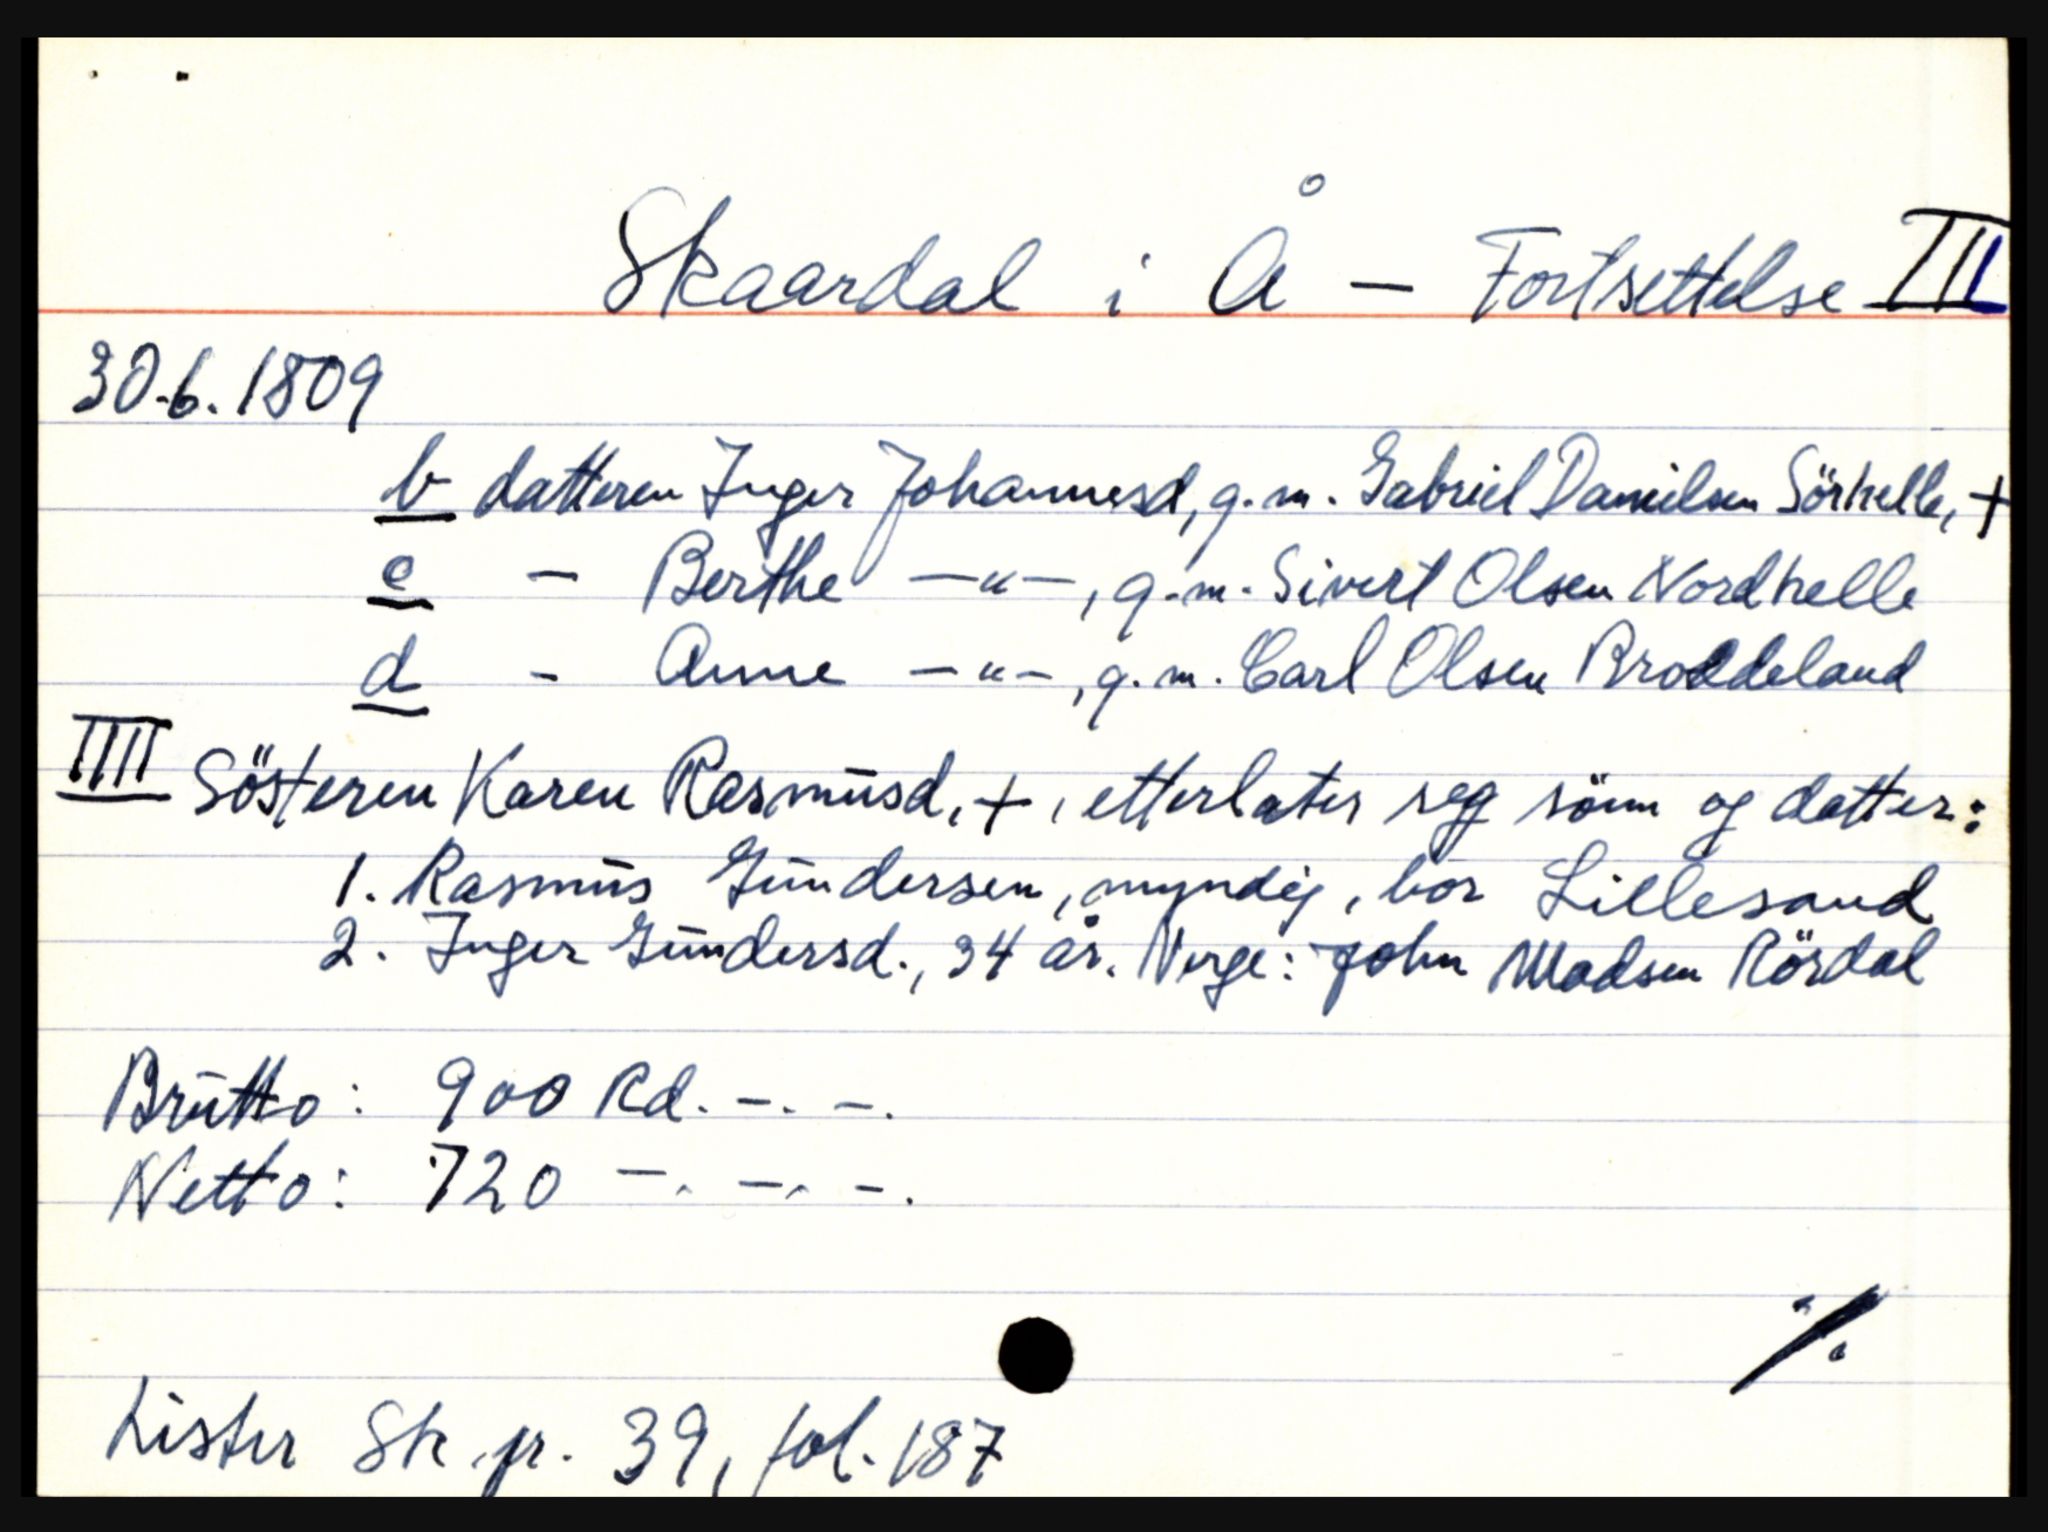 Skaardal i Å — Fortsettelse III
30.6.1809
b datteren Inger Johannesd, g.m. Gabriel Danielsen Sörhelle, +
c — Berthe —"—, g.m. Sivert Olsen Nordhelle
d - Anne —"—, g.m. Carl Olsen Broddeland
IIII Sösteren Karen Rasmusd, +, etterlater seg sönn og datter:
1. Rasmus Gundersen, myndig, bor Lillesand
2. Inger Gundersd., 34 år. Verge: John Madsen Rördal
Brutto: 900 Rd. -. -.
Netto: 720 —. —. -.
./.
Lister Sk.pr. 39, fol. 187